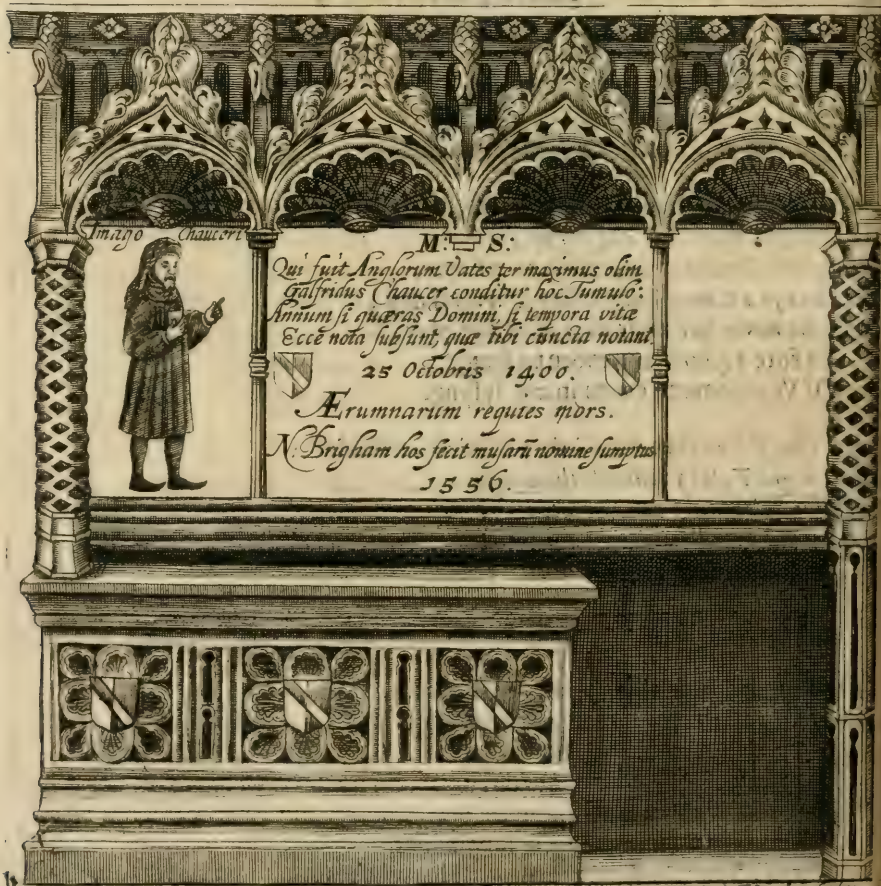 Imago Chauceri
M: S:
Qui fuit Anglorum Vates ter maximus olim
Galfridus Chaucer conditur hoc Tumulo:
Annum si quæras Domini, si tempora vitæ
Ecce nota subsunt, quæ tibi cuncta notant
25 Octobris 1400.
Ærumnarum requies mors.
N: Brigham hos fecit musarū nomine sumptus
1556.